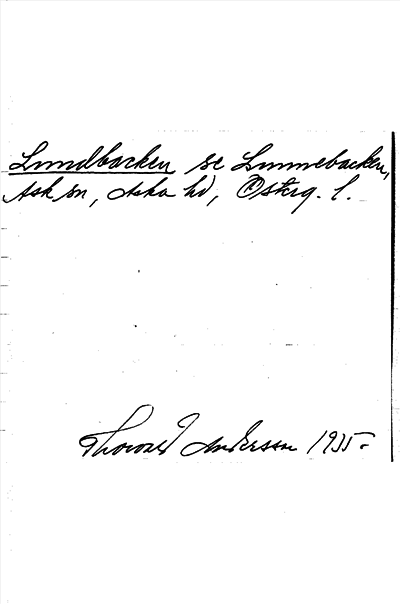 Lundbacken se Lunnebacken,
Ask sn, Aska hd, Österg. l.
Thorvald Andersson 1935.